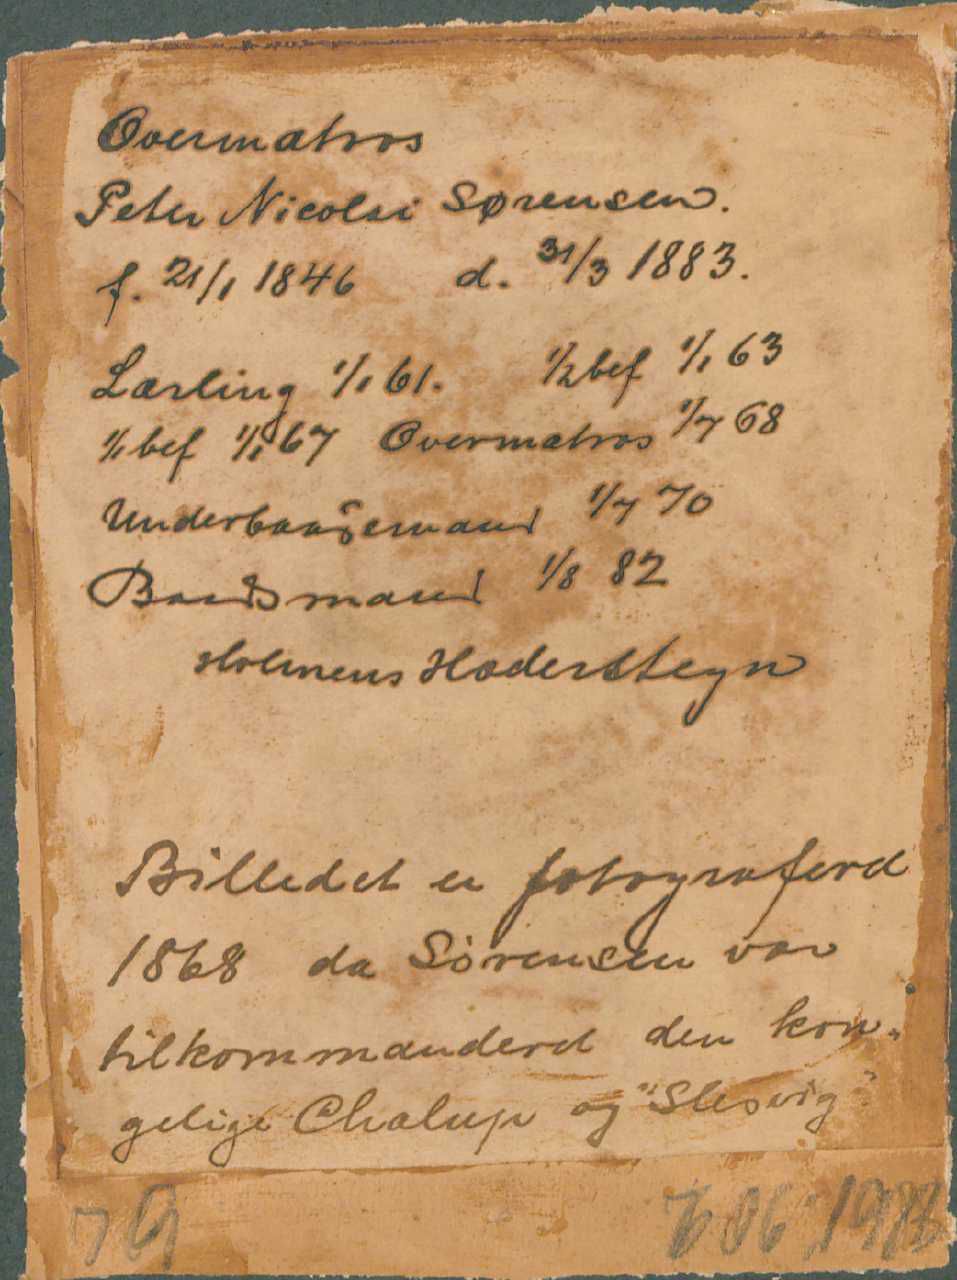 Overmatros
Peter Nicolai Sørensen.
f. 21/1 1846 d. 31/3 1883.
Lærling 1/1 61. 1/2 bef 1/1 63
1/1 bef 1/1 67 Overmatros 1/7 68
Underbaadsmand 1/7 70
Baadsmand 1/8 82
Holmens Hæderstegn
Billedet er fotograferd
1868 da Sörensen var
tilkommanderd den kon„
gelige Chalup og "Slesvig"